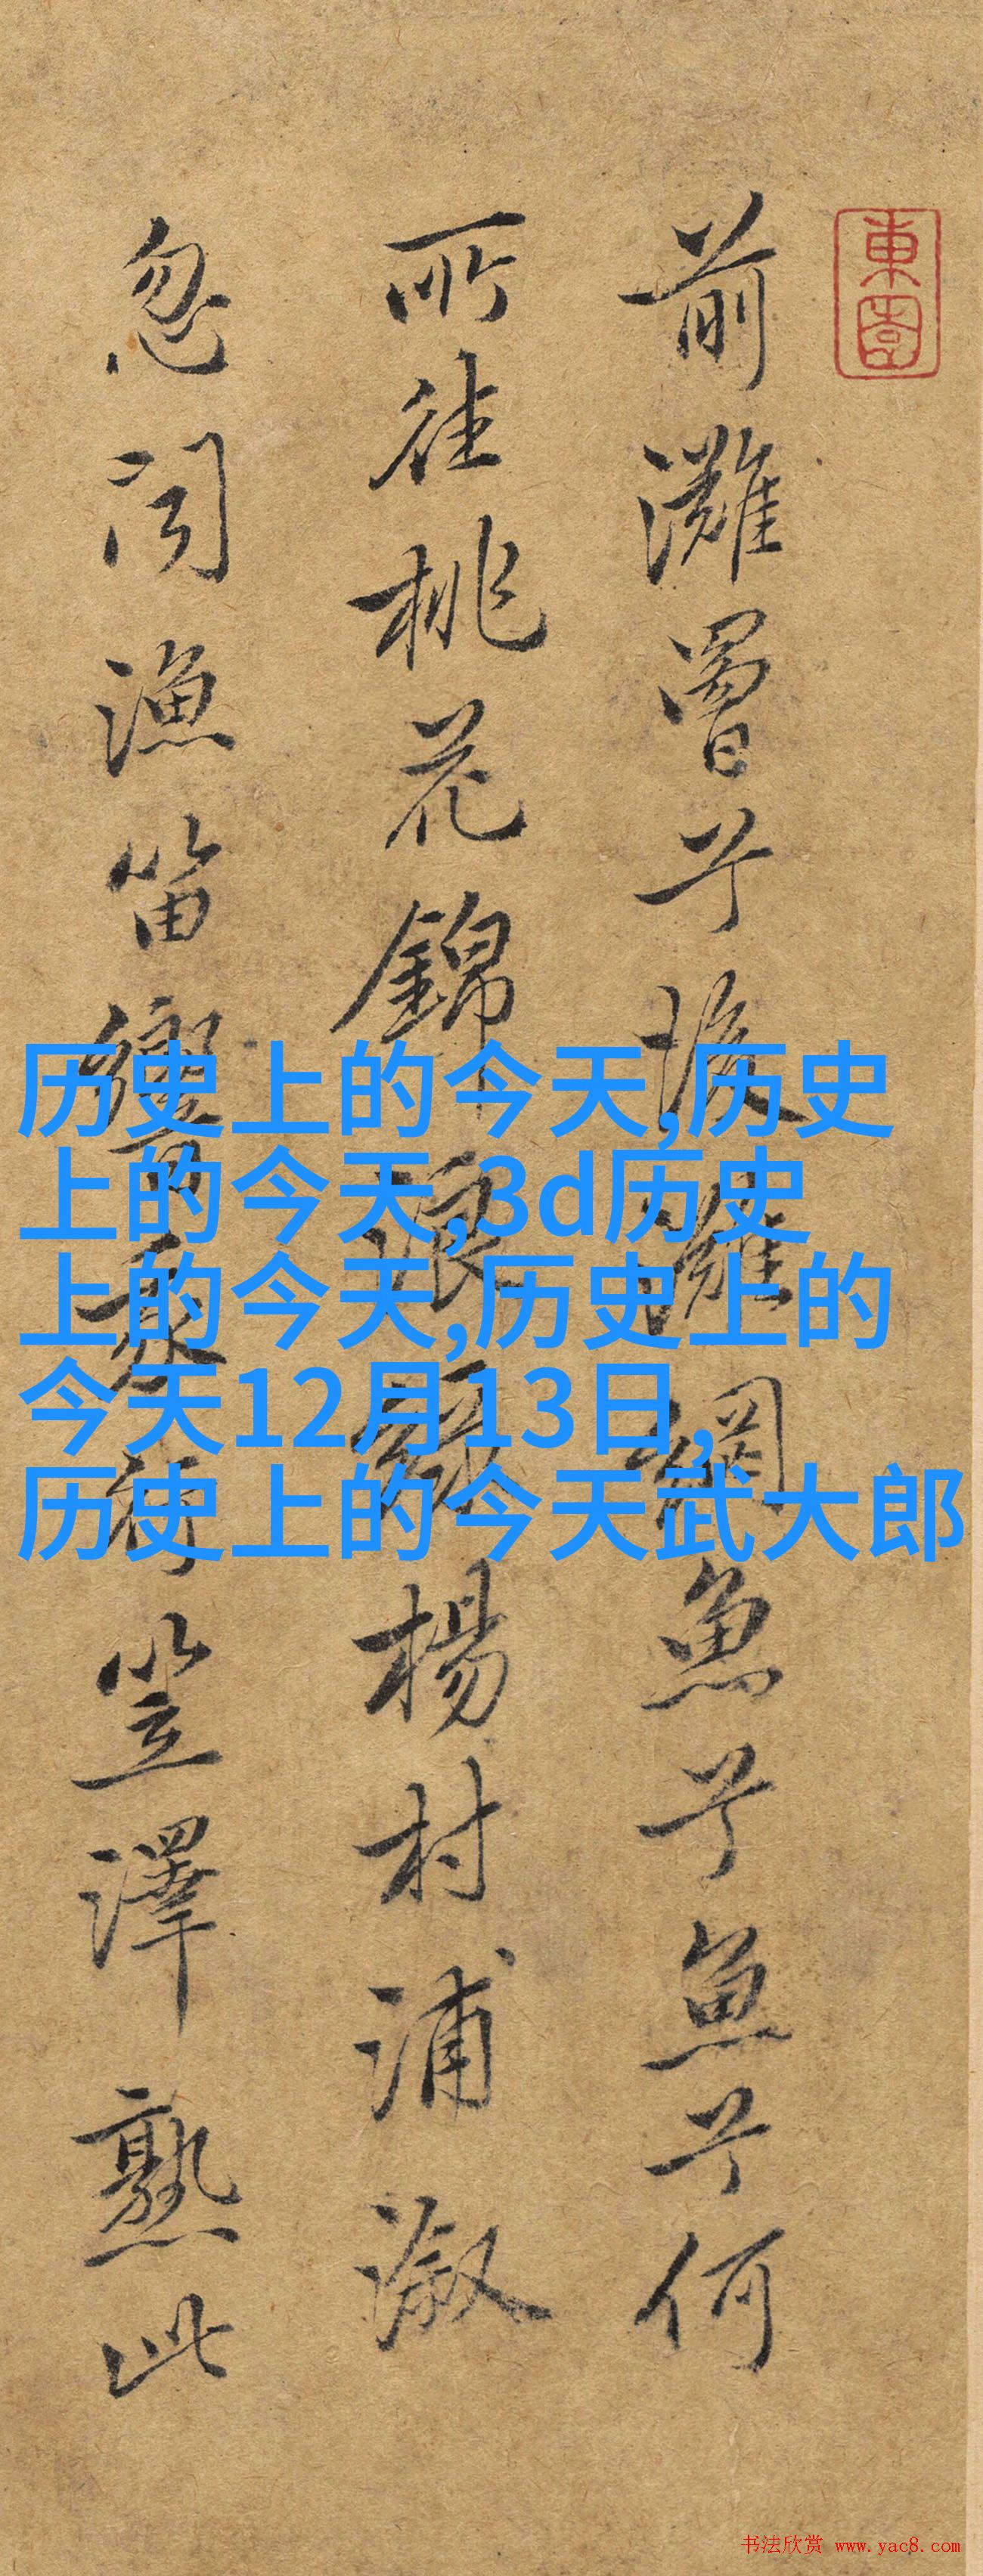 東園
前灘罾兮後灘網魚兮魚兮何
所往桃花錦浪綠楊村浦溆
忽聞漁笛響我行笠澤熟此
历史上的今天,历史
上的今天,3d历史
上的今天,历史上的
今天12月13日,
历史上的今天武大郎
书法欣赏 www.yac8.com